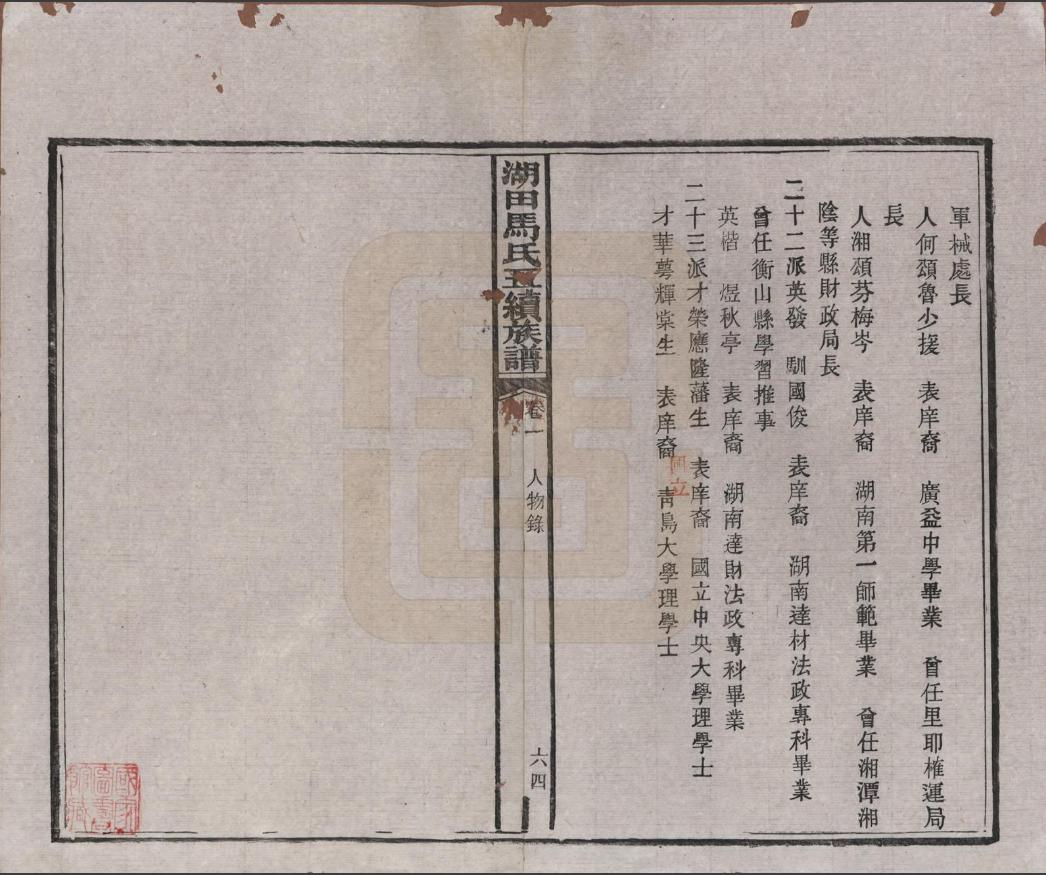 軍械處長
人何頌魯少援　表庠裔　廣益中學畢業　曾任里耶榷運局
長
人湘頌芬梅岑　表庠裔　湖南第一師範畢業　曾任湘潭湘
陰等縣財政局長
二十二派英發　馴國俊　表庠裔　湖南達材法政專科畢業
曾任衡山縣學習推事
英楷　煜秋亭　表庠裔　湖南達財法政專科畢業
二十三派才榮應隆藩生　表庠裔　國立中央大學理學士
才華萼輝棠生　表庠裔　國立青島大學理學士
湖田馬氏五續族譜
卷一　人物錄　六四
國家圖書館藏